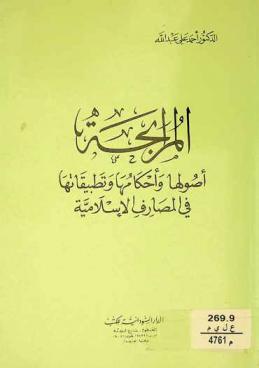 الدكتور أحمد علي عبدالله
المرابحة
أصولها وأحكامها وتطبيقاتها
في المصارف الإسلامية
الدار السودانية للكتب
269.9
ع ل ي م
4761 م